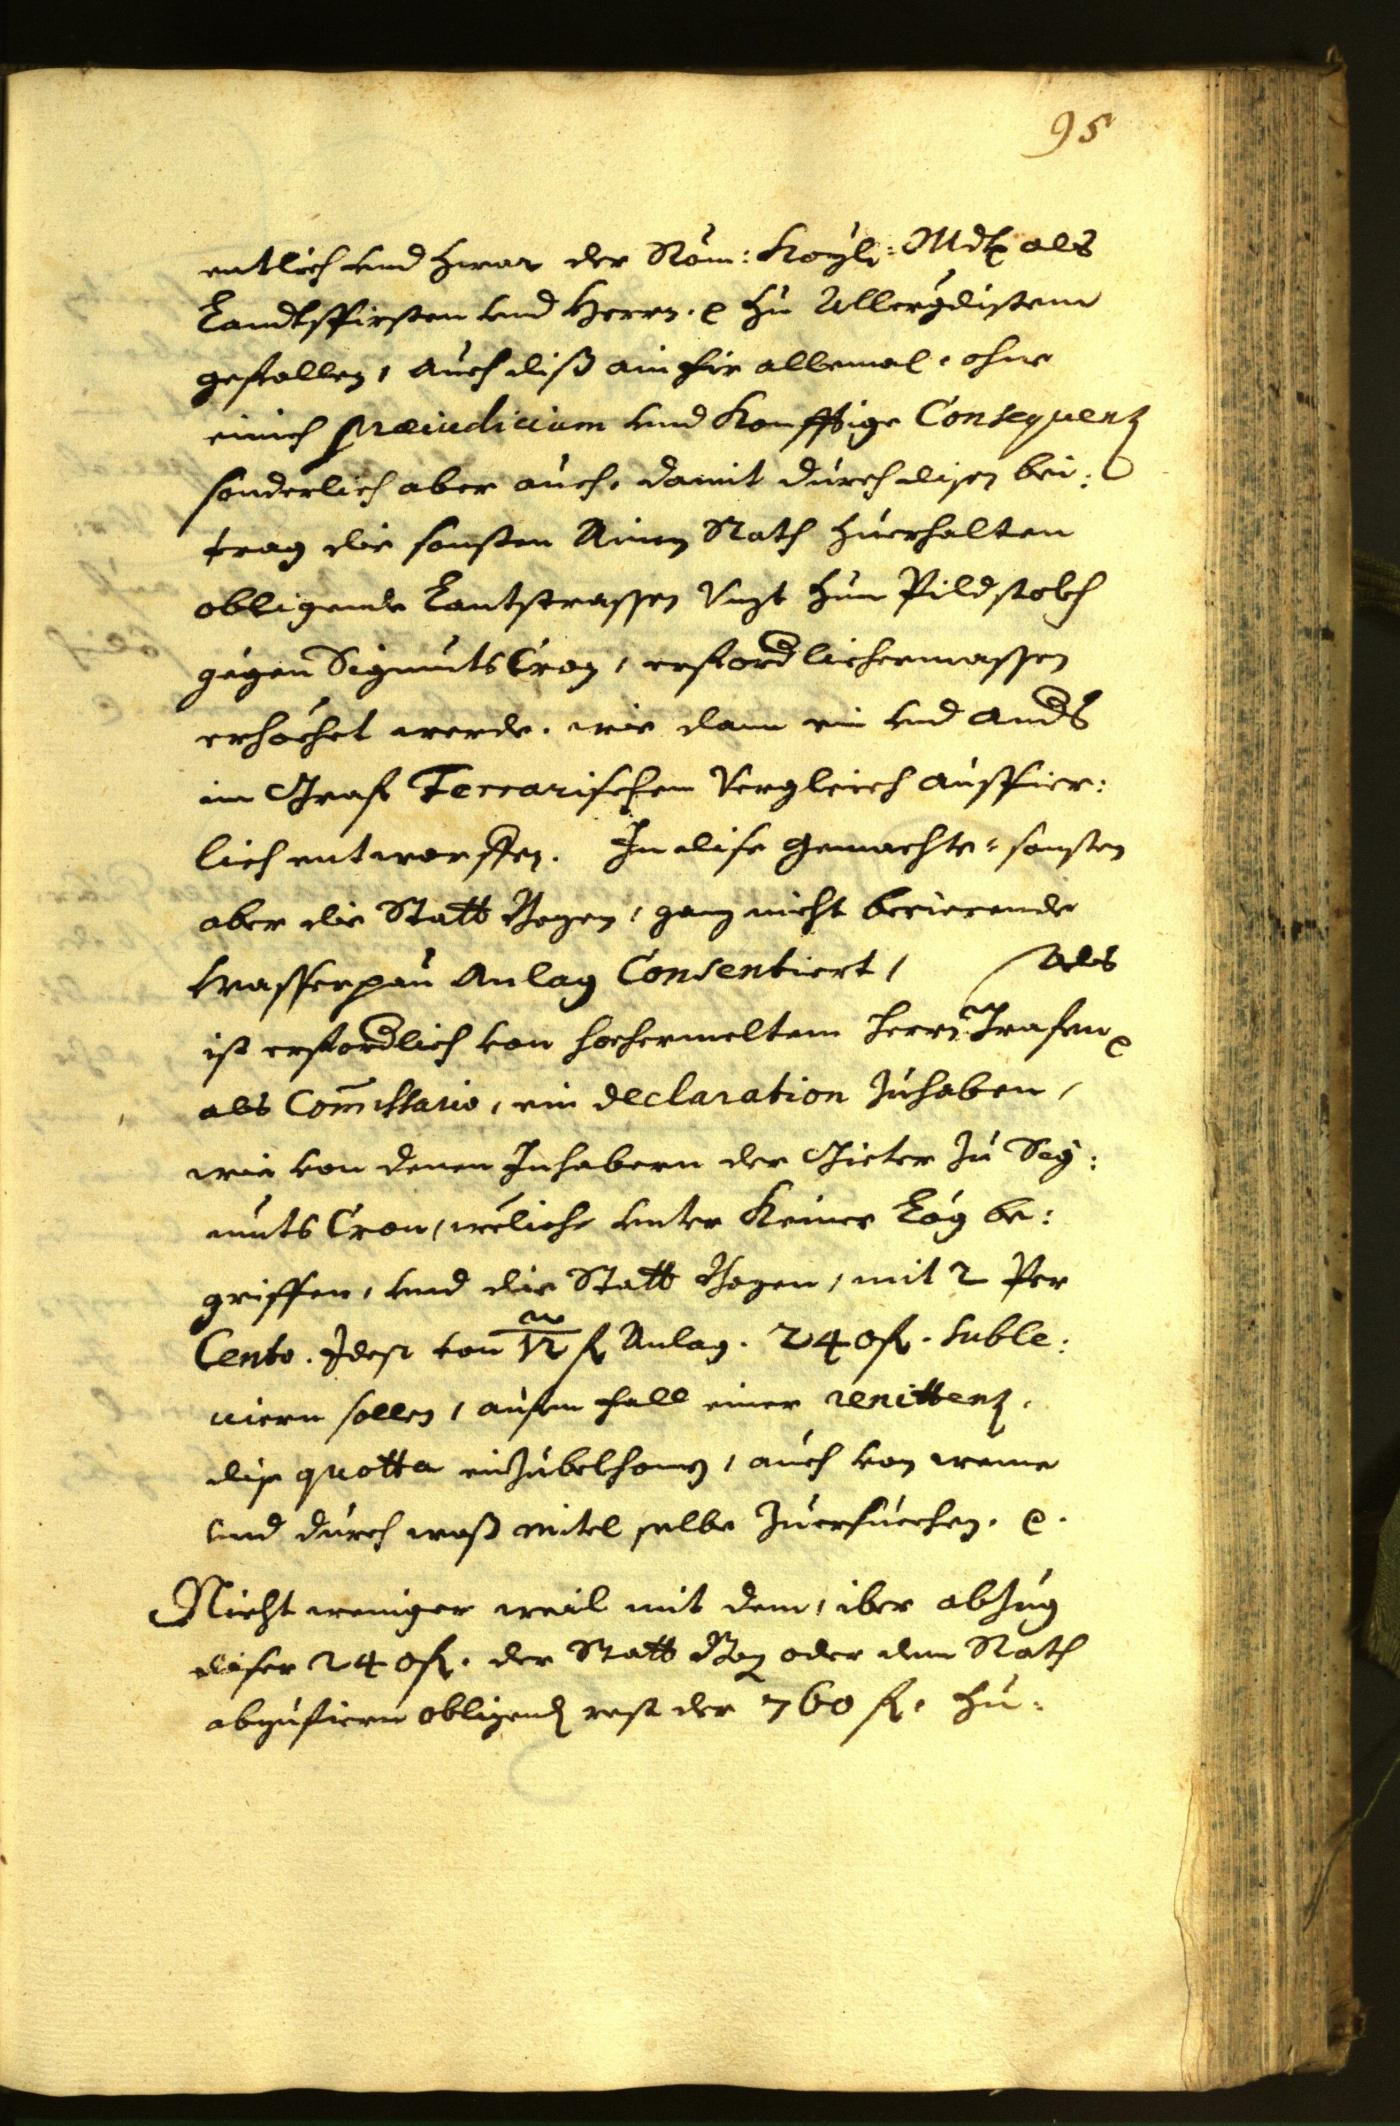 95
entlich und zwar der Röm: Kayl: Mdt als
Landtsfirsten und Herrn. e zu Allergdistem
gefallen, auch diß ain fir allemal, ohne
einich præiudicium und Konfftige Consequenz
sonderlich aber auch, damit durch disen bei:
trag die sonsten Ainen Rath zuerhalten
obligende Lantstrassen Unzt zum Pildstokh
gegen Sigmuts Cron, erfordlichermassen
erhöchet werde. wie dann ein und anders
im Graf Ferrarischen Vergleich ausfier:
lich entworffen. In dise gemachte: sonsten
aber die Statt Bozen, ganz nicht berierende
Wasserpau Anlag Consentiert, als
ist erfordlich von hochermeltem Herrn Grafen e
als Commissario, ein declaration zuhaben,
wie von denen Inhabern der Gieter zu Sig:
muts Cron, weliche unter Keiner Leg be:
griffen, und die Statt Bozen, mit 2 Per
Cento. Idest von 12 m/ fl Anlag. 240 fl. suble:
viern sollen, aufm fall einer renittenz,
dise quotta einzubekhomen, auch von weme
und durch waß mitel selbe zuersuechen. e.
Nicht weniger weil mit dem, iber abzug
diser 240 fl. der Statt Boz oder dem Rath
abzufiern obligend rest der 760 fl. zu: